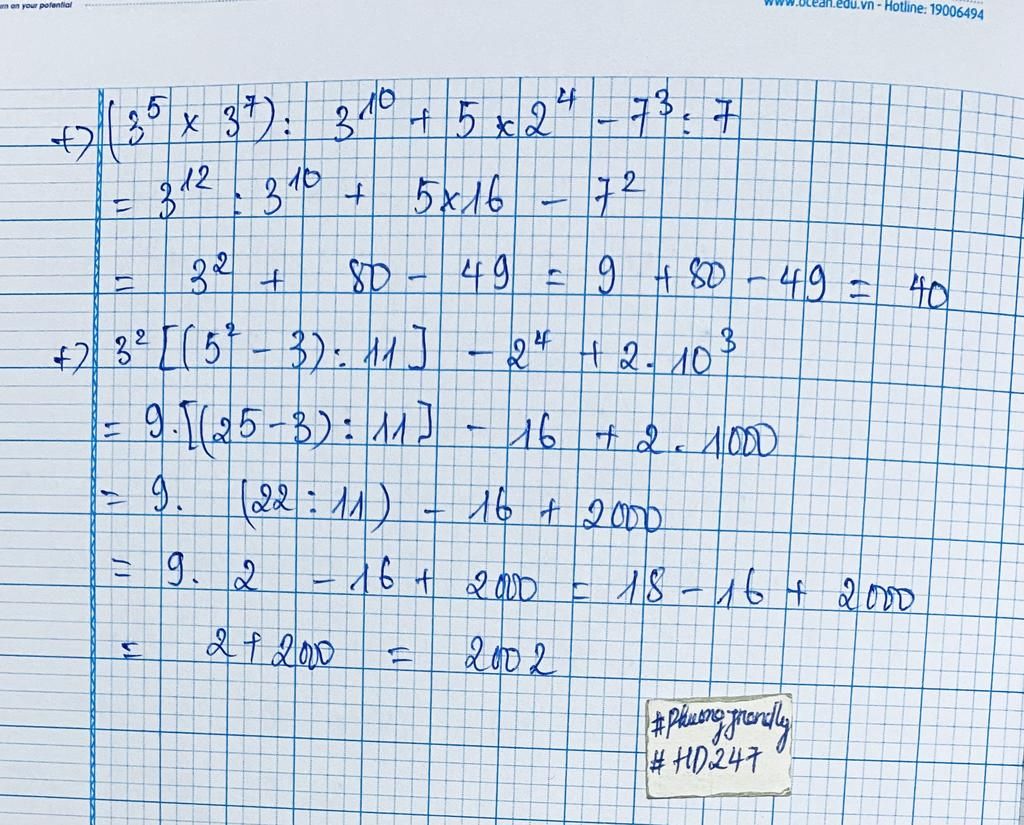 rn on your potential
www.ocean.edu.vn - Hotline: 19006494
+) (3⁵ × 3⁷) : 3¹⁰ + 5 × 2⁴ - 7³ : 7
= 3¹² : 3¹⁰ + 5×16 - 7²
= 3² + 80 - 49 = 9 + 80 - 49 = 40
+) 3² [(5² - 3) : 11] - 2⁴ + 2. 10³
= 9.[(25-3) : 11] - 16 + 2. 1000
= 9. (22 : 11) - 16 + 2000
= 9. 2 - 16 + 2000 = 18 - 16 + 2000
= 2 + 2000 = 2002
#HD247